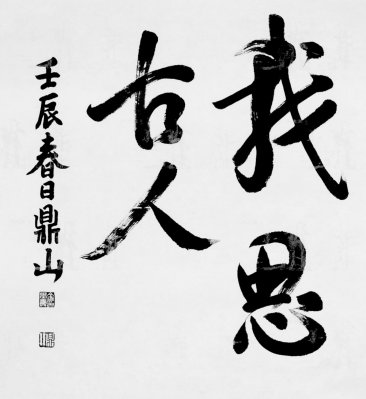 我思
古人
壬辰春日鼎山